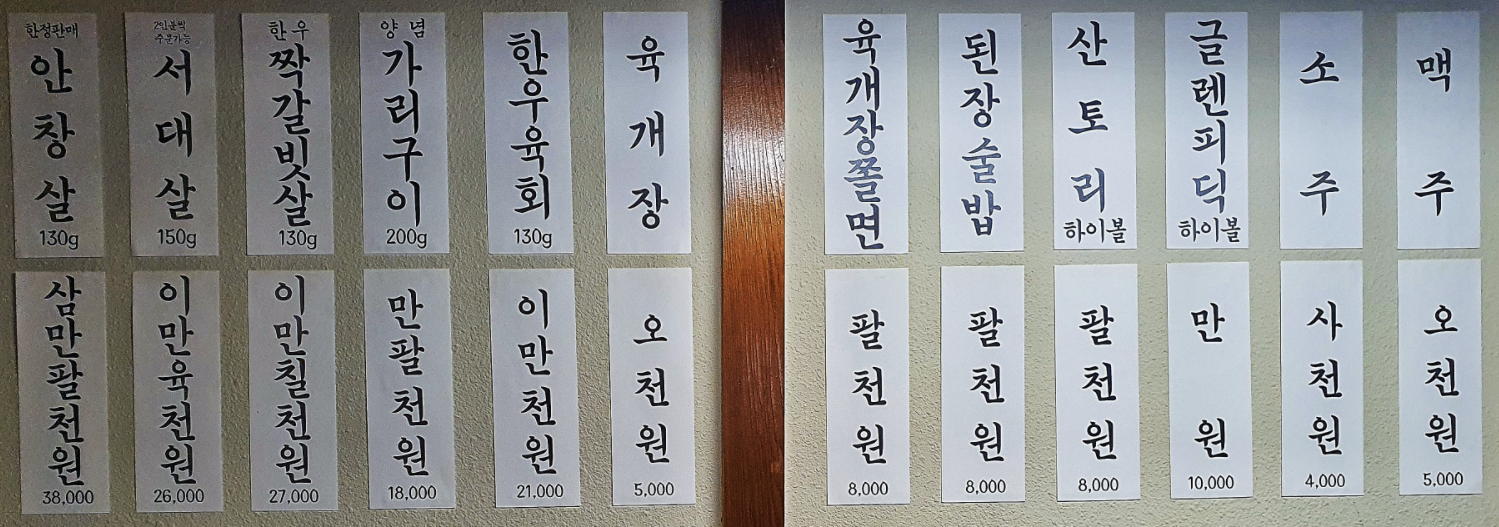 한정판매
안창살
130g
삼만팔천원
38,000
2인분씩
주문가능
서대살
150g
이만육천원
26,000
한우
짝갈빗살
130g
이만칠천원
27,000
양념
가리구이
200g
만팔천원
18,000
한우육회
130g
이만천원
21,000
육개장
오천원
5,000
육개장쫄면
팔천원
8,000
된장술밥
팔천원
8,000
산토리
하이볼
팔천원
8,000
글렌피딕
하이볼
만원
10,000
소주
사천원
4,000
맥주
오천원
5,000